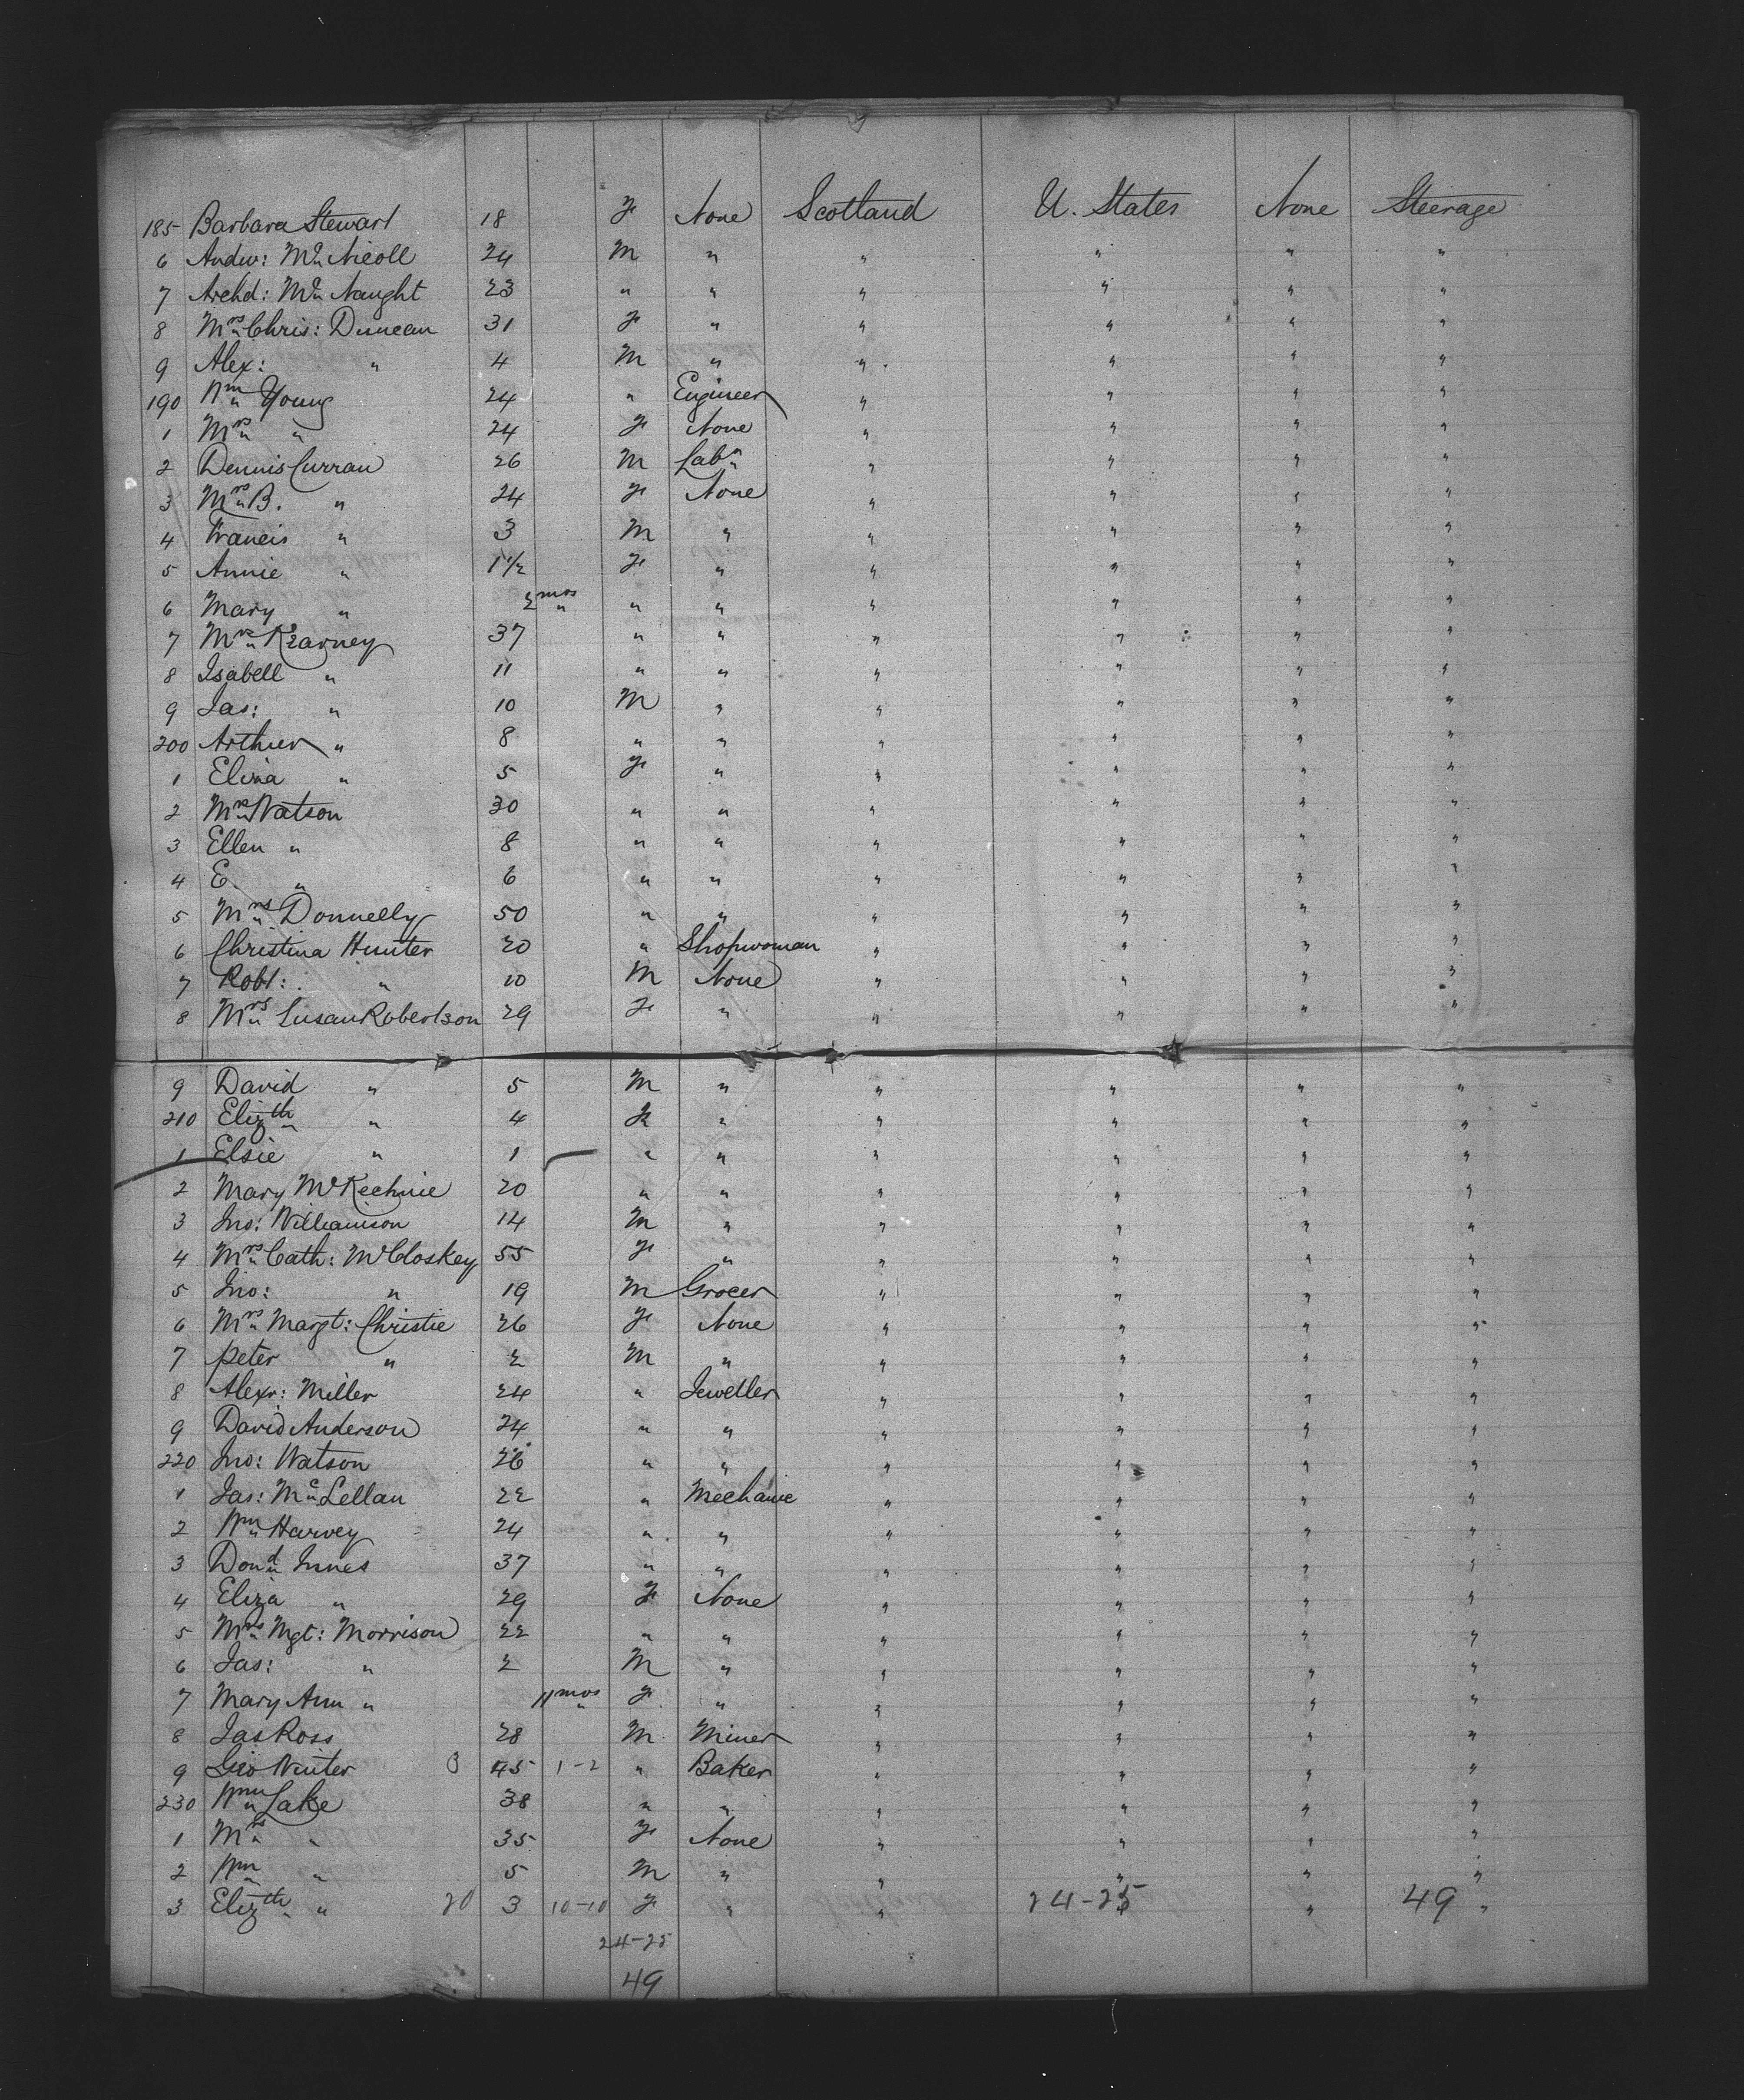 185 Barbara Stewart 18 F None Scotland U. States None Steerage
6 Andw: Mc Nicoll 24 M " " " " "
7 Archd: Mc Naught 23 " " " " " "
8 Mrs Chris: Duncan 31 F " " " " "
9 Alex: " 4 M " " " " "
190 Wm Young 24 " Engineer " " " "
1 Mrs " 24 F None " " " "
2 Dennis Curran 26 M Labr " " " "
3 Mrs B. " 24 F None " " " "
4 Francis " 3 M " " " " "
5 Annie " 1 1/2 F " " " " "
6 Mary " 2 mos " " " " " "
7 Mrs Kearney 37 " " " " " "
8 Isabell " 11 " " " " " "
9 Jas: " 10 M " " " " "
200 Arthur " 8 " " " " " "
1 Eliza " 5 F " " " " "
2 Mrs Watson 30 " " " " " "
3 Ellen " 8 " " " " " "
4 E. " 6 " " " " " "
5 Mrs Donnelly 50 " " " " " "
6 Christina Hunter 20 " Shopwoman " " " "
7 Robt: " 10 M None " " " "
8 Mrs Susan Robertson 29 F " " " " "
9 David " 5 M " " " " "
210 Elizth " 4 F " " " " "
1 Elsie " 1 " " " " " "
2 Mary McKechnie 20 " " " " " "
3 Jno: Williamson 14 M " " " " "
4 Mrs Cath: McCloskey 55 F " " " " "
5 Jno: " 19 M Grocer " " " "
6 Mrs Margt: Christie 26 F None " " " "
7 Peter " 2 M " " " " "
8 Alexr: Miller 24 " Jeweller " " " "
9 David Anderson 24 " " " " " "
220 Jno: Watson 26 " " " " " "
1 Jas: McLellan 22 " Mechanic " " " "
2 Wm Harvey 24 " " " " " "
3 Dond Innes 37 " " " " " "
4 Eliza " 29 F None " " " "
5 Mrs Mgt: Morrison 22 " " " " " "
6 Jas: " 2 M " " " " "
7 Mary Ann " 11 mos F " " " " "
8 Jas Ross 28 M Miner " " " "
9 Geo Winter 3 45 1-2 " Baker " " " "
230 Wm Lake 38 " " " " " "
1 Mrs " 35 F None " " " "
2 Wm " 5 M " " " " "
3 Elizth " 20 3 10-10 F " " 24-25 " " 49 "
24-25
49